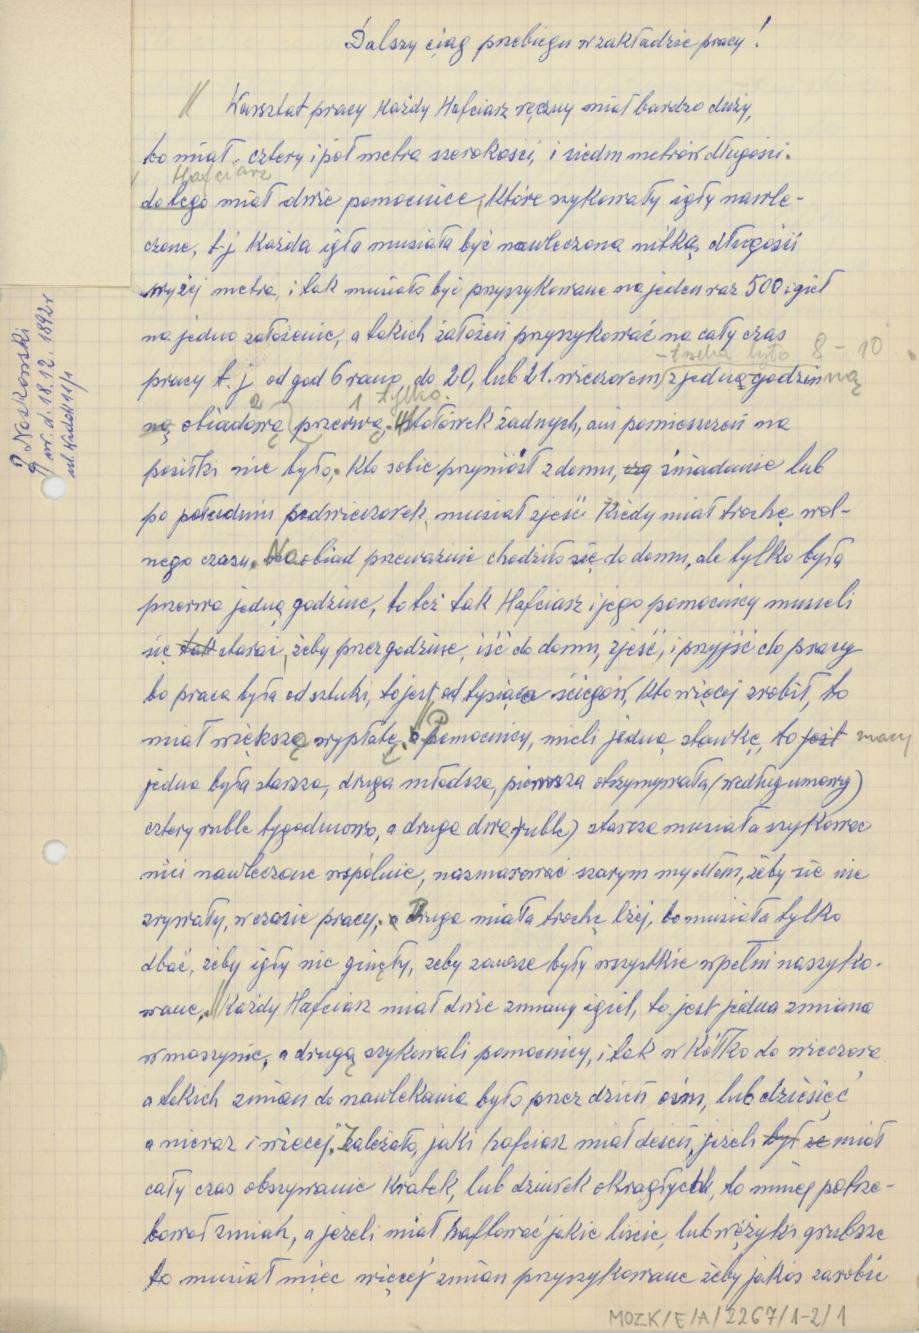 Dalszy ciąg przebiegu w zakładzie pracy!
Warsztat pracy każdy Hafciarz ręczny miał bardzo duży,
bo miał cztery i pół metra szerokości, i siedm metrów długości.
Hafciarz
do tego miał dwie pomocnice, które szykowały igły nawle-
czone, t-j każda igła musiała być nawleczona nitką długości
wyżej metra, i tak musiało być przyszykowane na jeden raz 500 igieł
na jedno założenie, a takich założeń przyszykować na cały czas
- trzeba było 8 - 10
pracy t.j od god 6 rano, do 20, lub 21. wieczorem z jedną godzin ną
2 1 tylko.
ną obiadową przerwą, Stołówek żadnych, ani pomieszczeń na
posiłki nie było, kto sobie przyniósł z domu, czy śniadanie lub
po południu podwieczorek, musiał zjeść kiedy miał trochę wol-
nego czasu. Na obiad przeważnie chodziło się do domu, ale tylko była
przerwa jedną godzine, to też tak Hafciarz i jego pomocnicy musieli
się tak starać, żeby przez godzine, iść do domu, zjeść, i przyjść do pracy
bo praca była od sztuki, to jest od tysiąca ściegów, kto więcej zrobił, to
miał większą wypłatę, a Pomocnicy, mieli jedną stawkę, to jest znaczy
jedna była starsza, druga młodsza, pierwsza otrzymywała (według umowy)
cztery ruble tygodniowo, a druga dwa (ruble) starsza musiała szykować
nici nawleczone wspólnie, nasmarować szarym mydłem, żeby się nie
zrywały, w czasie pracy, a Druga miała trochę lżej, bo musiała tylko
dbać, żeby igły nie ginęły, żeby zawsze były wszystkie w pełni naszyko-
wane, Każdy Hafciarz miał dwie zmiany igieł, to jest jedna zmiana
w maszynie, a drugą szykowali pomocnicy, i tak w kółko do wieczora
a takich zmian do nawlekania było przez dzień ośm, lub dziesięć
a nieraz i więcej. Zależało, jaki hafciarz miał deseń, jeżeli był ze miał
cały czas obszywanie kratek, lub dziurek okrągłych, to mniej potrze-
bował zmian, a jeżeli miał haftować jakie liście, lub wężyki grubsze
to musiał mieć więcej zmian przyszykowane żeby jakoś zarobić
? Noszkowski
ur. d. 18.12. 1892 r
MOZK/E/A/2267/1-2/1